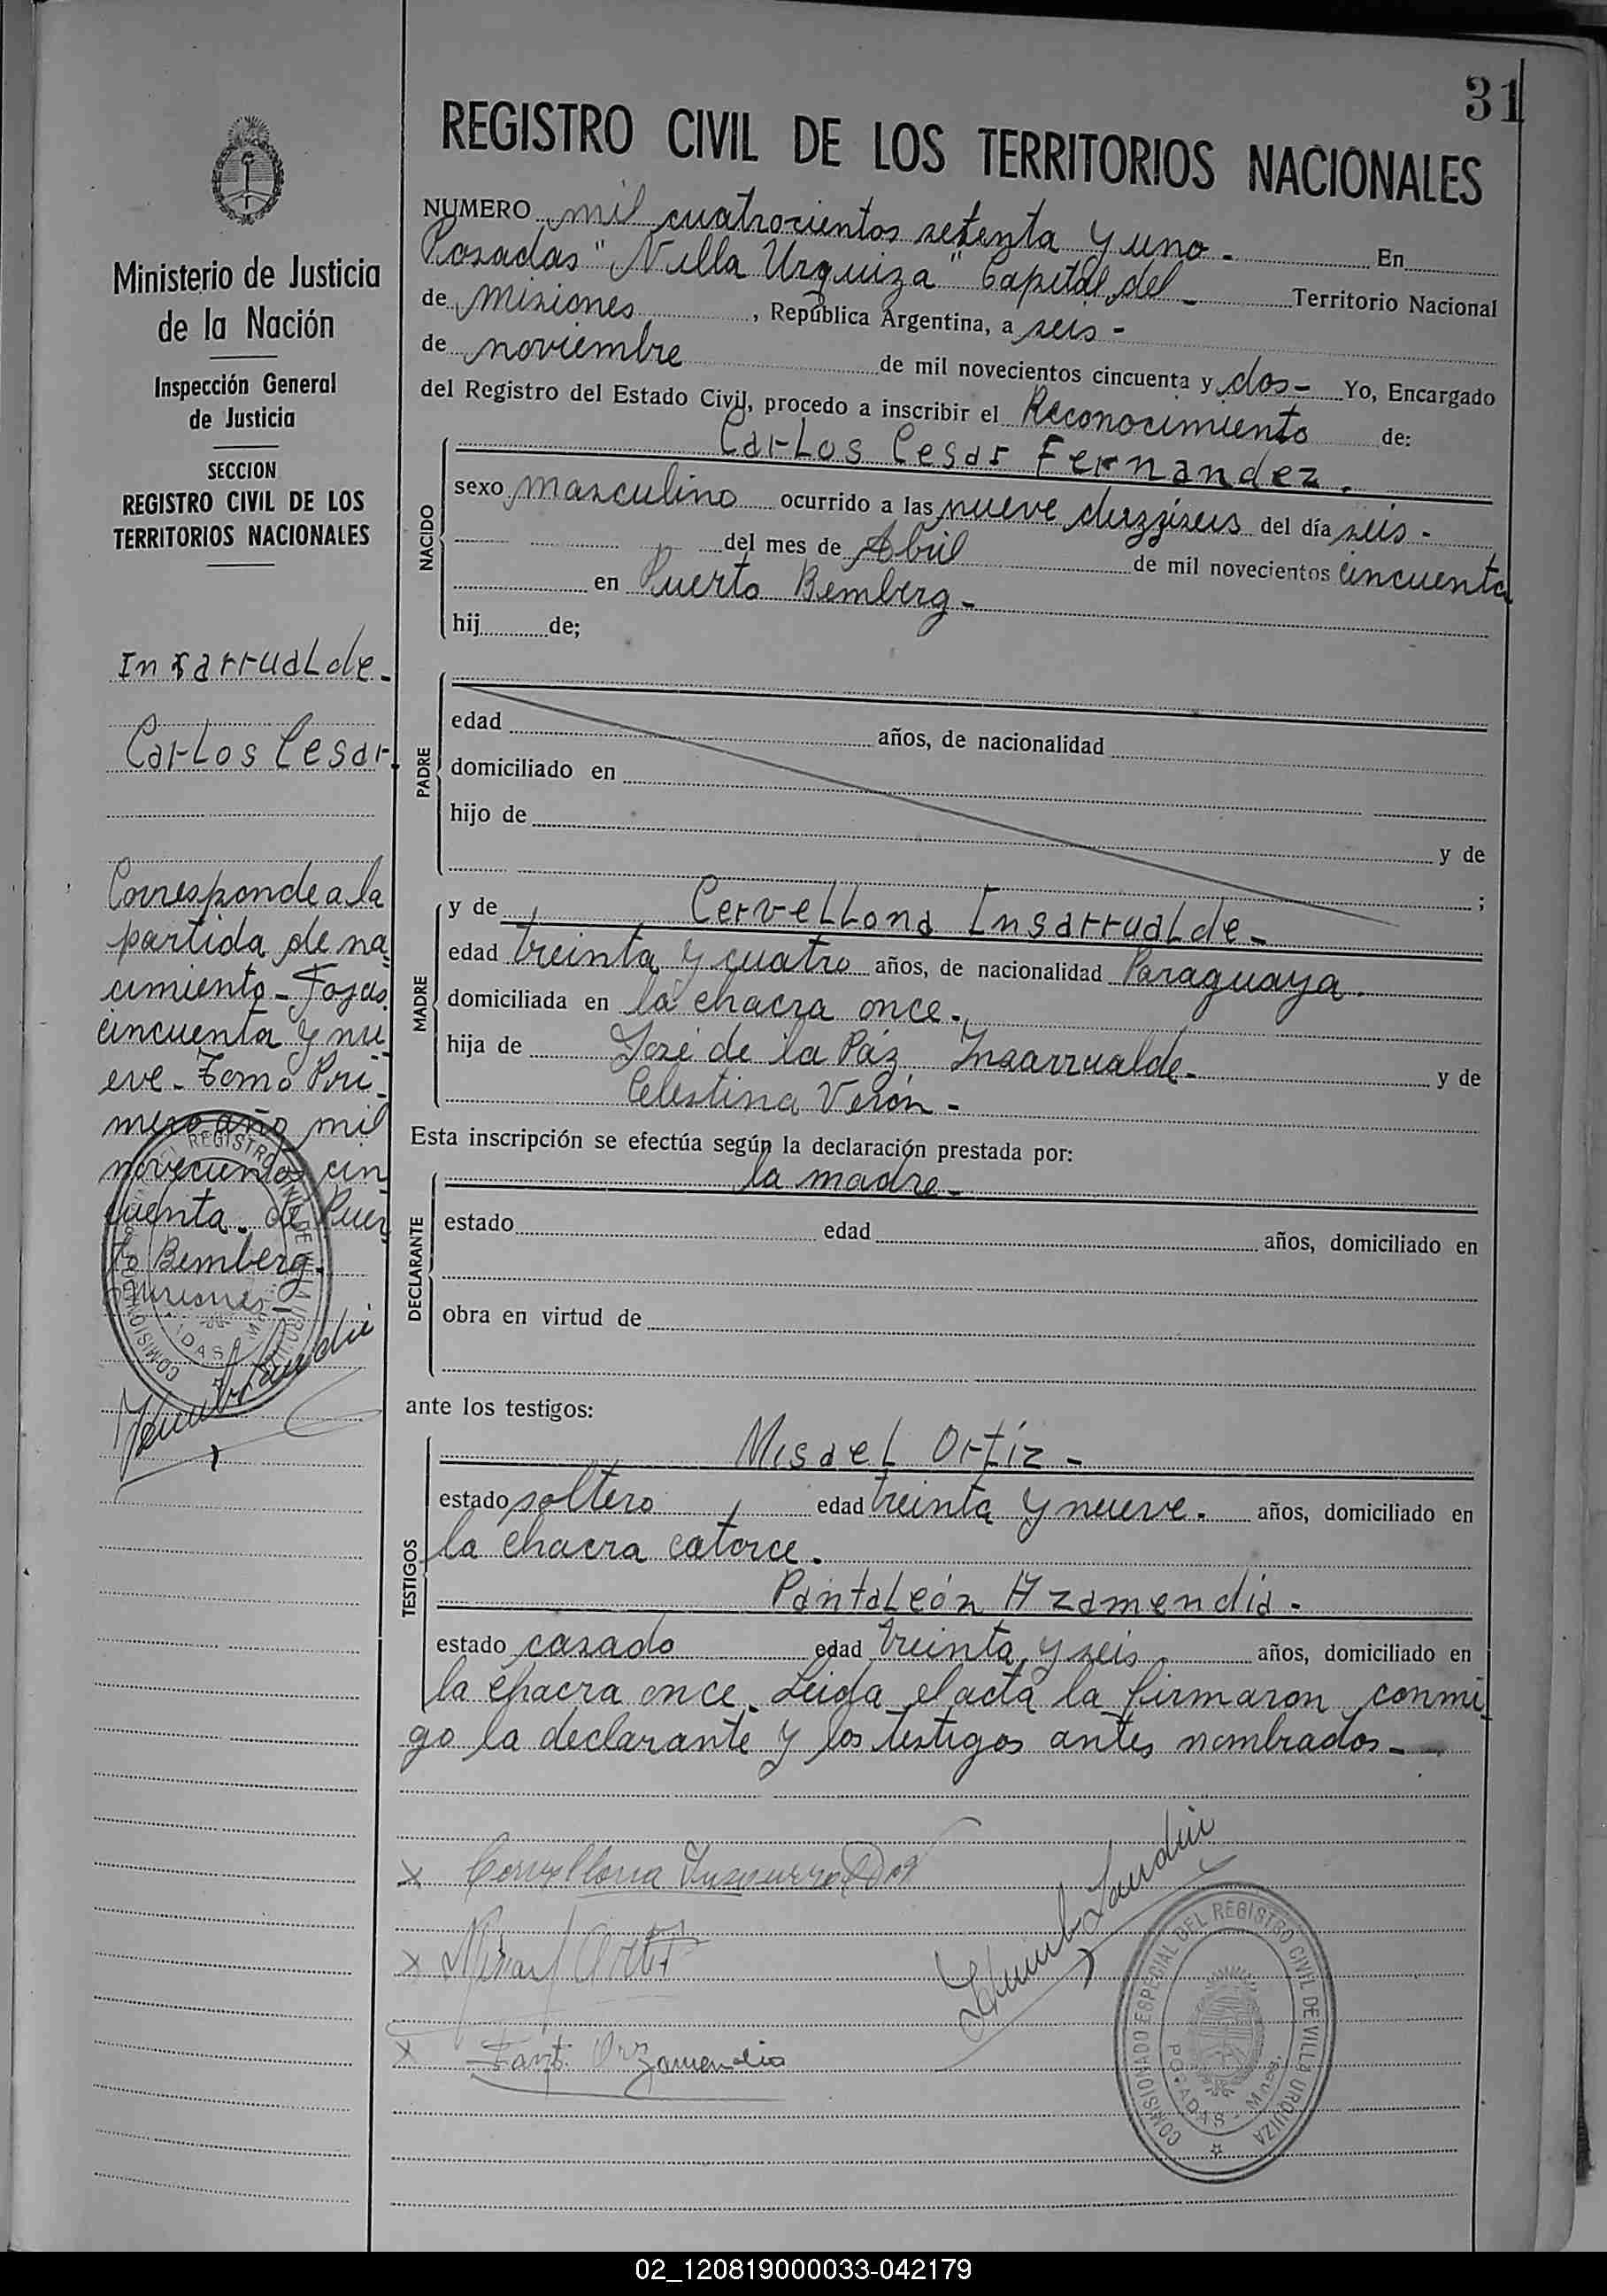 31
REGISTRO CIVIL DE LOS TERRITORIOS NACIONALES
Ministerio de Justicia
de la Nación
Inspección General
de Justicia
SECCION
REGISTRO CIVIL DE LOS
TERRITORIOS NACIONALES
Insarrualde-
Carlos Cesar.
Corresponde a la
partida de na-
cimiento- Fojas
cincuenta y nu-
eve- Tomo Pri-
mero año mil
novecientos cin
cuenta. de Puer
to Bemberg.
Misiones-
NUMERO mil cuatrocientos setenta y uno - En
Posadas "Villa Urquiza" Capital del - Territorio Nacional
de Misiones, República Argentina, a seis -
de noviembre de mil novecientos cincuenta y dos- Yo, Encargado
del Registro del Estado Civil, procedo a inscribir el Reconocimiento de:
NACIDO
Carlos Cesar Fernandez.
sexo masculino ocurrido a las nueve diezziseis del día seis -
del mes de Abril de mil novecientos cincuenta
en Puerto Bemberg-
hij de;
PADRE
edad años, de nacionalidad
domiciliado en
hijo de y de
;
MADRE
y de Cervellona Insarrualde-
edad treinta y cuatro años, de nacionalidad Paraguaya.
domiciliada en la chacra once-
hija de José de la Páz Insarrualde- y de
Celestina Verón-
Esta inscripción se efectúa según la declaración prestada por:
DECLARANTE
la madre-
estado edad años, domiciliado en
obra en virtud de
ante los testigos:
TESTIGOS
Misael Ortíz -
estado soltero edad treinta y nueve. años, domiciliado en
la chacra catorce.
Pantaleón Azamendia-
estado casado edad treinta y seis años, domiciliado en
la chacra once. Leida el acta la firmaron conmi-
go la declarante y los testigos antes nombrados-
x Cervellona
x Misael Ortiz
x Pant.
COMISIONADO ESPECIAL DEL REGISTRO CIVIL DE VILLA URQUIZA
POSADAS - Mnes.
02_120819000033-042179